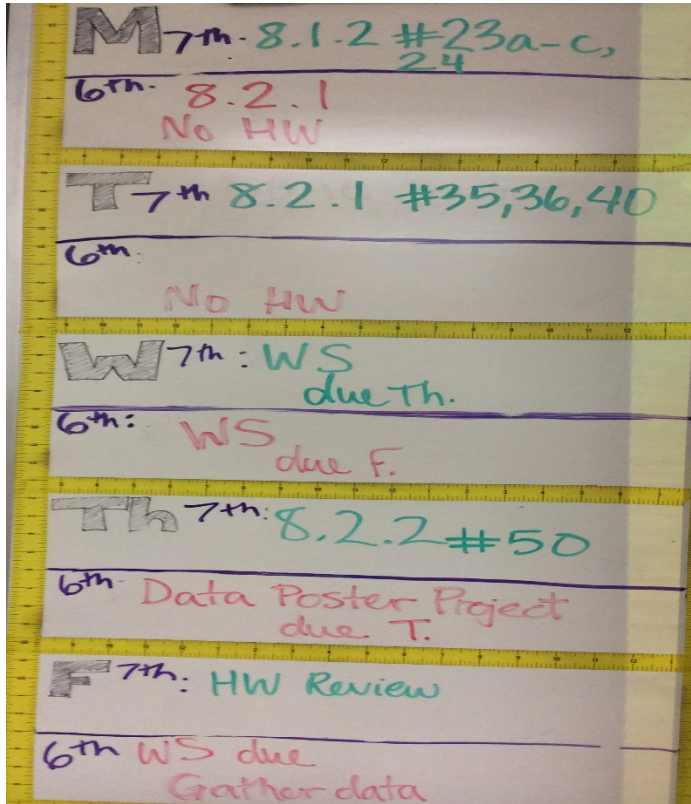 M 7th. 8.1.2 #23a-c,
24
6th. 8.2.1
No HW
T 7th 8.2.1 #35,36,40
6th.
No HW
W 7th: WS
due Th.
6th: WS
due F.
Th 7th: 8.2.2 #50
6th Data Poster Project
due T.
F 7th: HW Review
6th WS due
Gather data